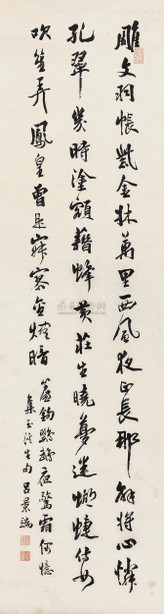 雕文羽帳紫金牀萬里西風夜正長那解將心憐
孔翠幾時塗額藉蜂黃莊生曉夢迷蝴蝶仕女
吹笙弄鳳皇曾是寂寥金燼暗
簾鉤鸚鵡夜驚霜何憶
集玉溪生句呂景端